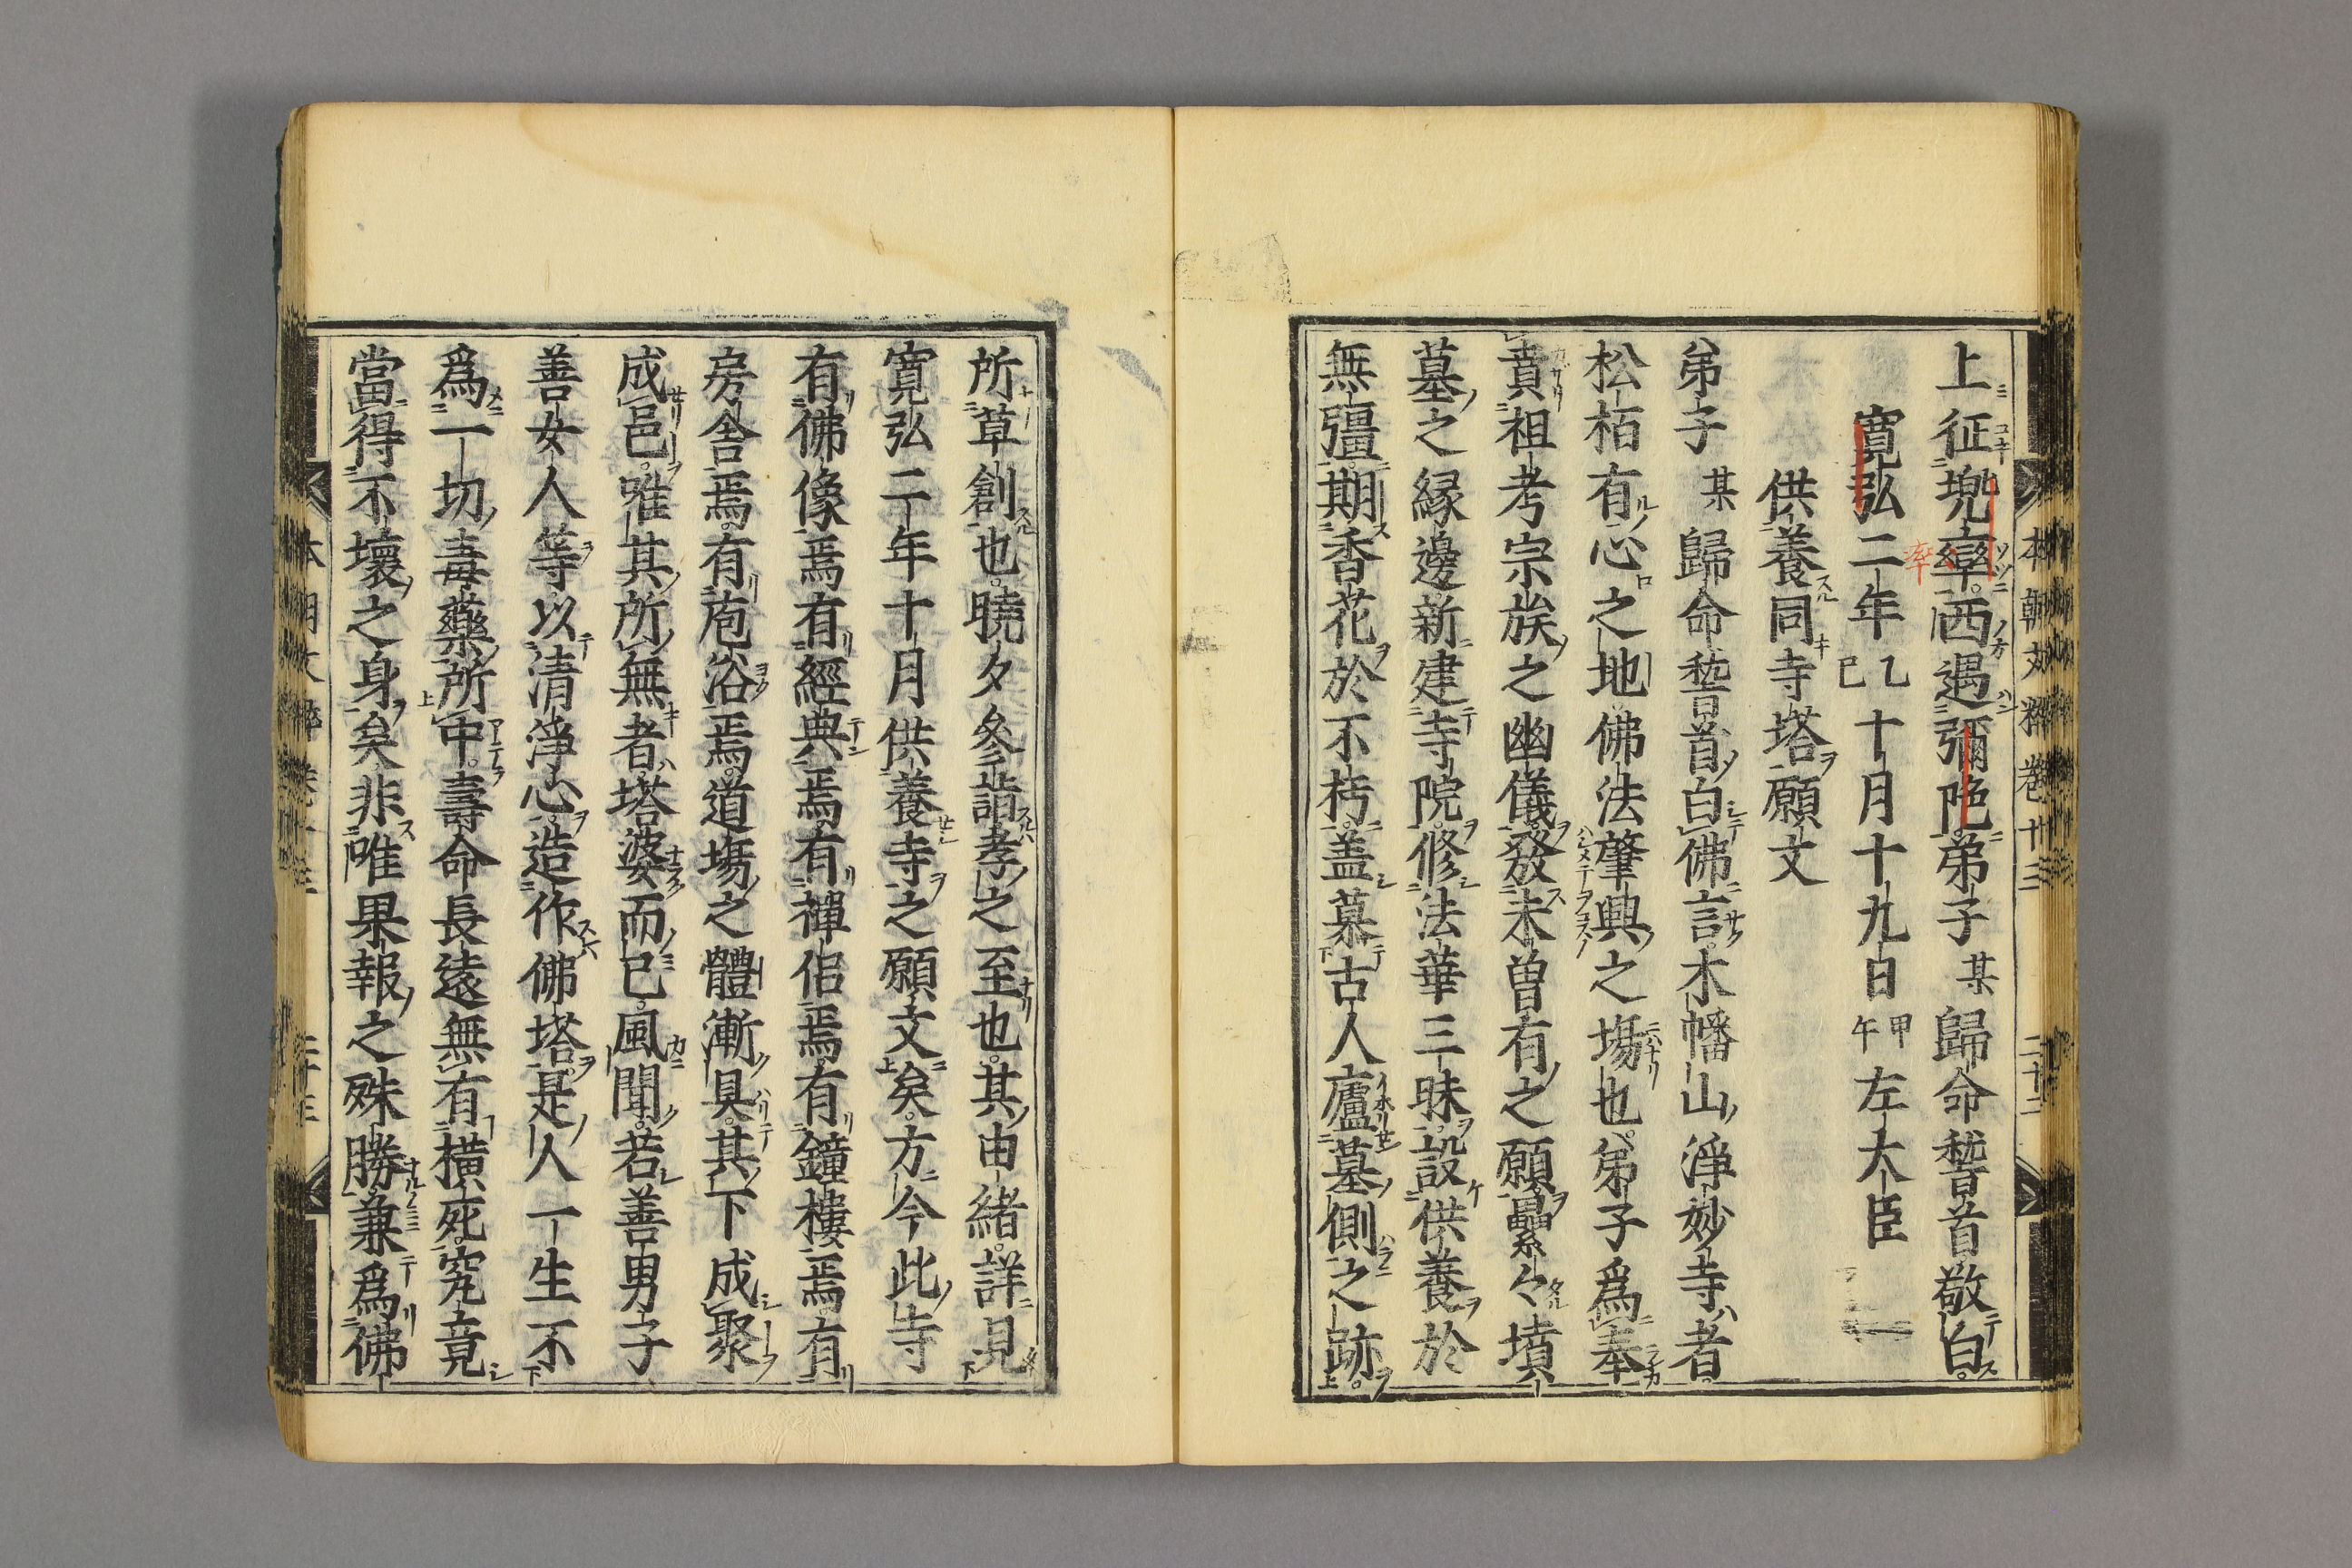 上征兜率西遇彌陁弟子某歸命稽首敬白
寛弘二年乙巳十月十九日甲午左大臣
供養同寺塔願文
弟子某歸命稽首白佛言木幡山淨妙寺者
松栢有心之地佛法肇興之塲也弟子爲奉
賁祖考宗族之幽儀發未曽有之願纍々墳
墓之縁邊新建寺院修法華三昧設供養於
無彊期香花於不朽盖慕古人廬墓側之跡
所草創也曉夕參詣孝之至也其由緒詳見
寛弘二年十月供養寺之願文矣方今此寺
有佛像焉有經典焉有禪侶焉有鐘樓焉有
房舎焉有庖浴焉道塲之體漸具其下成聚
成邑唯其所無者塔婆而已風聞若善男子
善女人等以清淨心造作佛塔是人一生不
爲一切毒藥所中壽命長遠無有横死究竟
當得不壞之身矣非唯果報之殊勝兼爲佛
本朝文粹卷十三
二十二
率